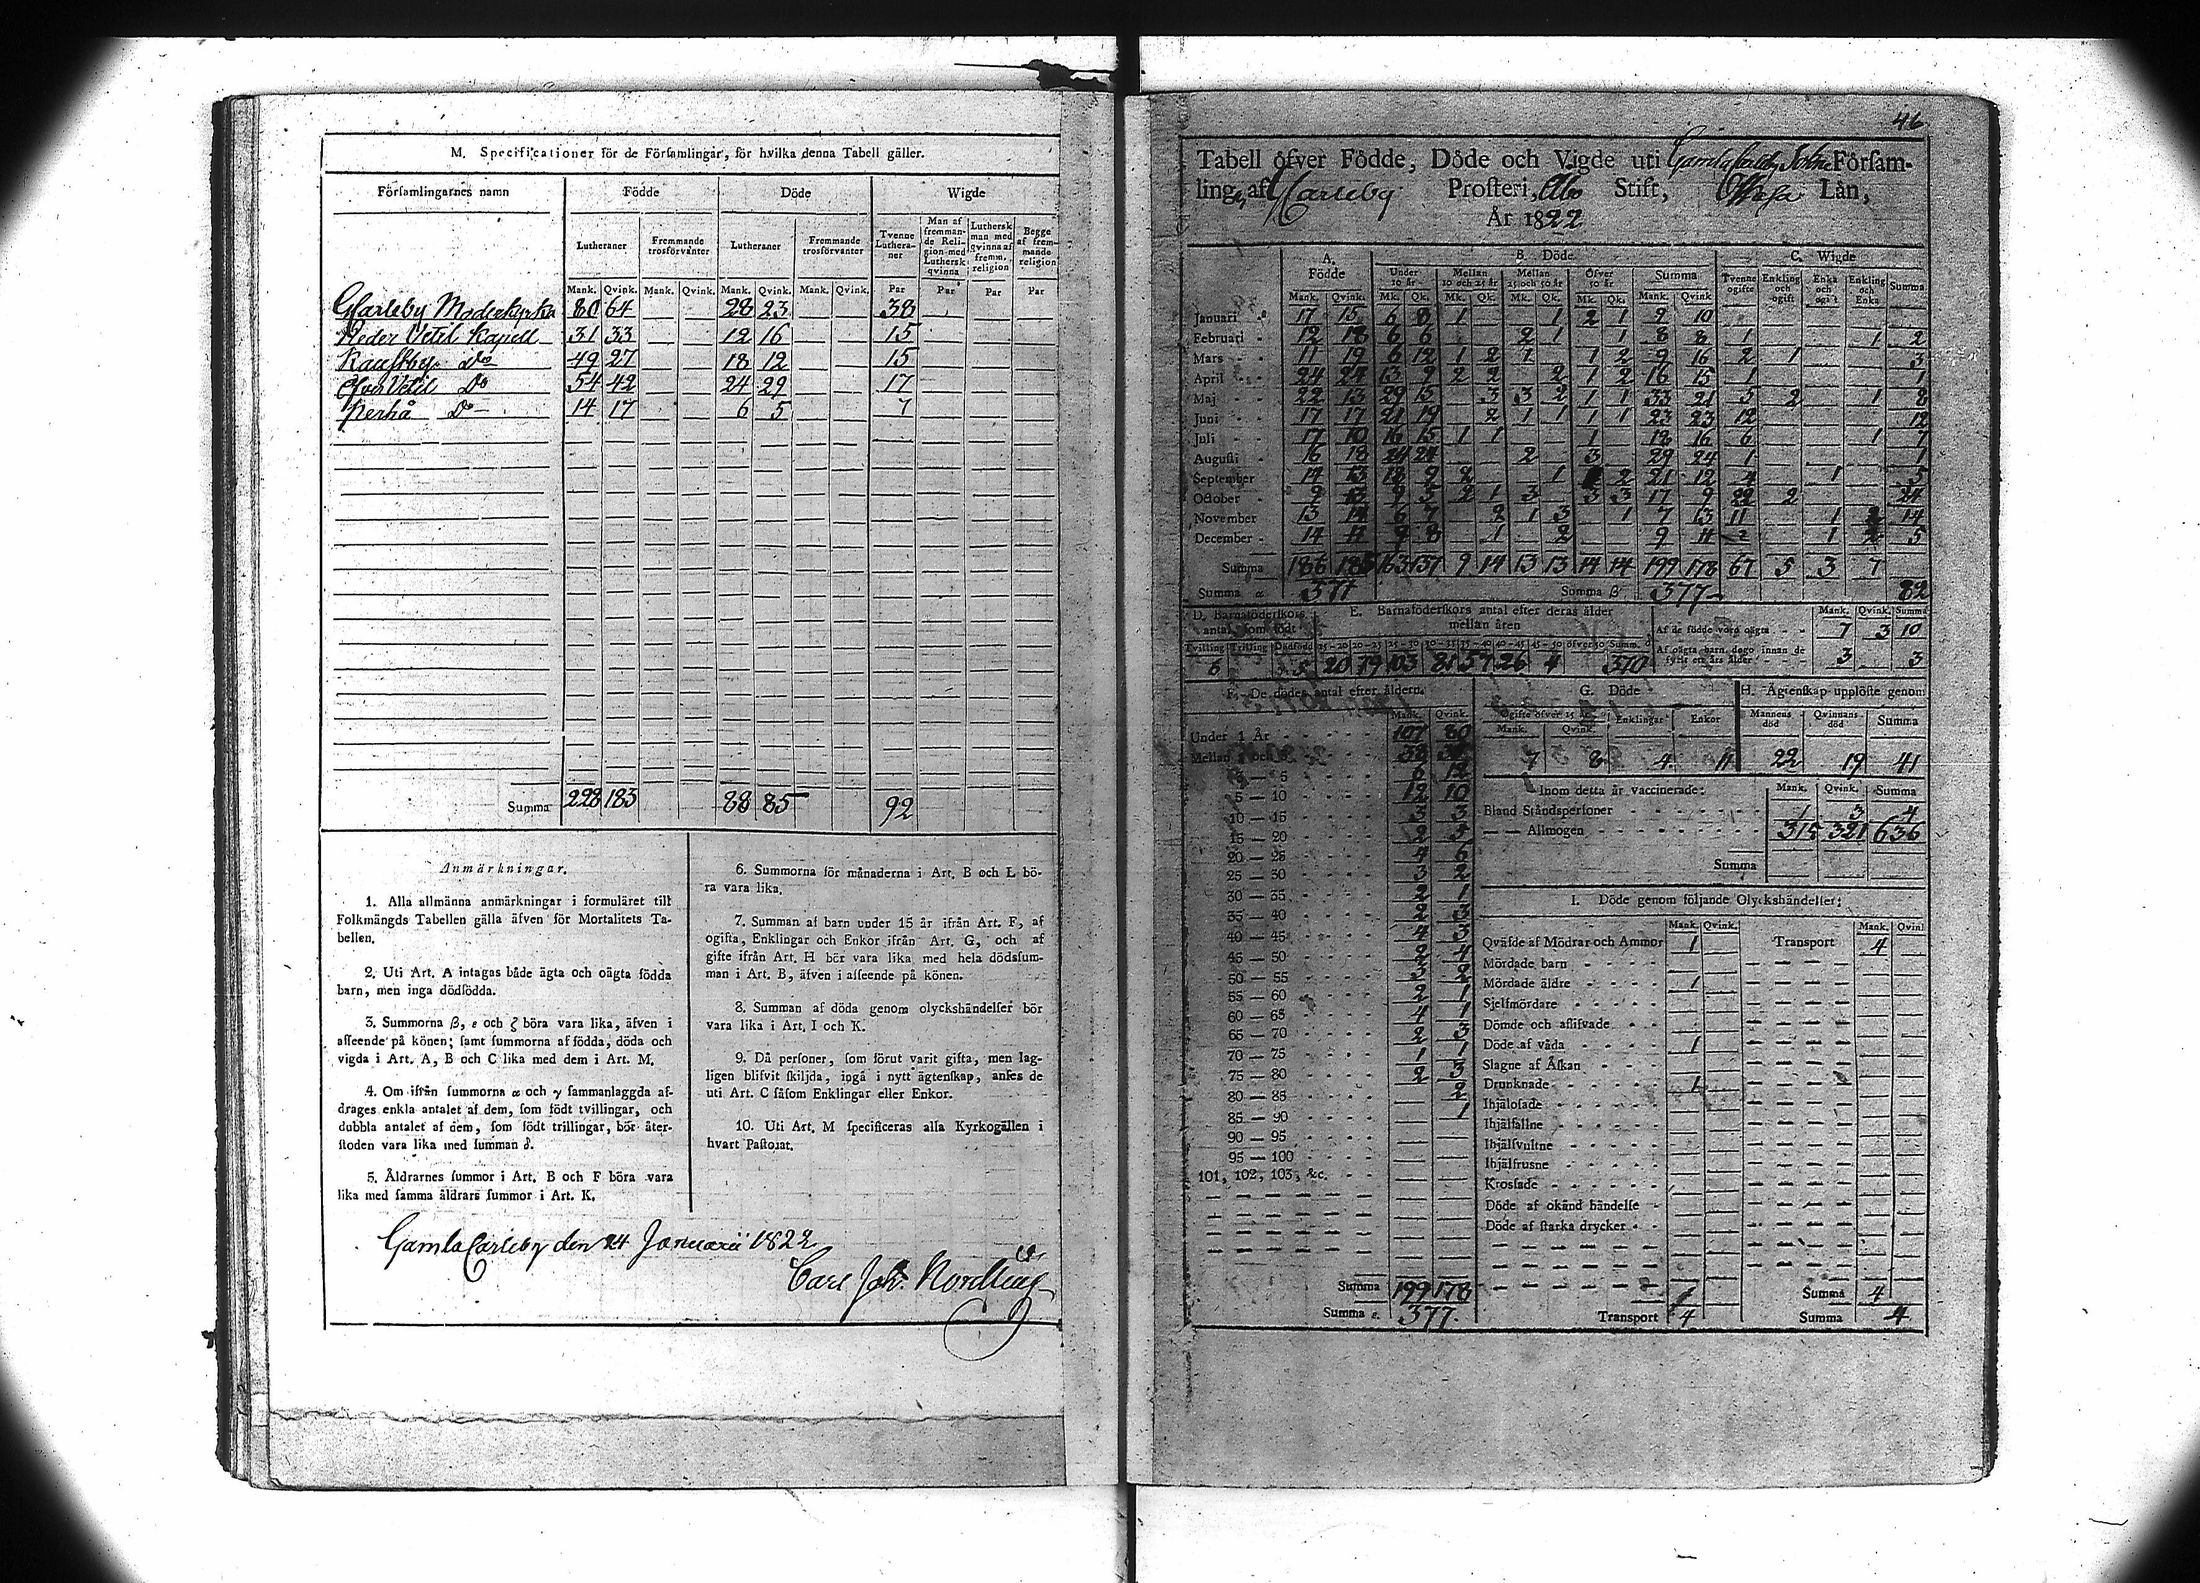 M. Specificationer för de Församlingar, för hvilka denna Tabell gäller.
Församlingarnes namn Födde Döde Wigde
Lutheraner Fremmande trosförvanter Lutheraner Fremmande trosförvanter Tvenne Lutheraner Man af fremmande Religion med Luthersk qvinna Luthersk man med qvinna af fremm. religion Begge af fremmande religion
Mank. Qvink. Mank. Qvink. Mank. Qvink. Mank. Qvink. Par Par Par Par
GCarleby Moderkyrka 80 64 28 23 38
Neder Vetil Kapell 31 33 12 16 15
Kaustby Do 49 27 18 12 15
Öfver Vetil Do 54 42 24 29 17
Perhå Do 14 17 6 5 7
Summa 228 183 88 85 92
Anmärkningar.
1. Alla allmänna anmärkningar i formuläret till
Folkmängds Tabellen gälla äfven för Mortalitets Ta-
bellen.
2. Uti Art. A intagas både ägta och oägta födda
barn, men inga dödfödda.
3. Summorna β, ε och ζ böra vara lika, äfven i
afseende på könen; samt summorna af födda, döda och
vigda i Art. A, B och C lika med dem i Art. M.
4. Om ifrån summorna α och γ sammanlaggda af-
drages enkla antalet af dem, som födt tvillingar, och
dubbla antalet af dem, som födt trillingar, bör åter-
stoden vara lika med summan δ.
5. Åldrarnes summor i Art. B och F böra vara
lika med samma åldrars summor i Art. K.
6. Summorna för månaderna i Art. B och L bö-
ra vara lika.
7. Summan af barn under 15 år ifrån Art. F, af
ogifta, Enklingar och Enkor ifrån Art. G, och af
gifte ifrån Art. H bör vara lika med hela dödsfum-
man i Art. B, äfven i afseende på könen.
8. Summan af döda genom olyckshändelser bör
vara lika i Art. I och K.
9. Då personer, som förut varit gifta, men lag-
ligen blifvit skiljda, ingå i nytt ägtenskap, anses de
uti Art. C såsom Enklingar eller Enkor.
10. Uti Art. M specificeras alla Kyrkogällen i
hvart Pastorat.
Gamla Carleby den 24 Januarii 1822
Carl Joh. Nordling
46
Tabell öfver Födde, Döde och Vigde uti Gamla Carleby Sokne Församling, af GCarleby Prosteri, Åbo Stift, Wasa Län,
År 1822
A. Födde B. Döde C. Wigde
Under 10 år Mellan 10 och 25 år Mellan 25 och 50 år Öfver 50 år Summa Tvenne ogifte Enkling och ogift Enka och ogift Enkling och Enka Summa
Mank. Qvink. Mk. Qk. Mk. Qk. Mk. Qk. Mk. Qk. Mank. Qvink
Januari 17 15 6 8 1 1 2 1 9 10
Februari 12 18 6 6 2 1 1 8 8 1 1 2
Mars 11 19 6 12 1 2 1 1 2 9 16 2 1 3
April 24 24 13 9 2 2 2 1 2 16 15 1 1
Maj 22 13 29 15 3 3 2 1 1 33 21 5 2 1 8
Juni 17 17 21 19 2 1 1 1 1 23 23 12 12
Juli 17 10 16 15 1 1 1 18 16 6 1 7
Augusti 16 18 24 24 2 3 29 24 1 1
September 14 13 18 9 2 1 2 21 12 4 1 5
October 9 13 9 5 2 1 3 3 3 17 9 22 2 24
November 13 14 6 7 2 1 3 1 7 13 11 1 2 14
December 14 11 9 8 1 2 9 11 2 1 2 5
Summa 186 185 163 137 9 14 13 13 14 14 199 178 67 5 3 7
Summa α 371 Summa β 377 82
D. Barnaföderskors antal som födt
Tvilling Trilling Dödfödd
6 5
E. Barnaföderskors antal efter deras ålder mellan åren
15-20 20-25 25-30 30-35 35-40 40-45 45-50 öfver 50 Summ. δ
20 79 103 81 57 26 4 370
Mank. Qvink. Summa
Af de födde voro oägta 7 3 10
Af oägta barn dogo innan de fyllt ett års ålder 3 3
F. De dödes antal efter åldern.
Mank. Qvink.
Under 1 År 107 80
Mellan 1 och 3 38
3 — 5 6 12
5 — 10 12 10
10 — 15 3 3
15 — 20 2 5
20 — 25 4 6
25 — 30 3 2
30 — 35 2 1
35 — 40 2 3
40 — 45 4 3
45 — 50 2 4
50 — 55 3 2
55 — 60 2 1
60 — 65 4 1
65 — 70 2 3
70 — 75 1 1
75 — 80 2 3
80 — 85 2
85 — 90 1
90 — 95
95 — 100
101, 102, 103, &c.
Summa 199 178
Summa ε. 377
G. Döde
Ogifte öfver 15 år Enklingar Enkor
Mank. Qvink.
7 8 4 11
H. Ägtenskap upplöste genom
Mannens död Qvinnans död Summa
22 19 41
Inom detta år vaccinerade: Mank. Qvink. Summa
Bland Ståndspersoner 1 3 4
— — Allmogen 315 321 636
Summa
I. Döde genom följande Olyckshändelser:
Mank. Qvink. Mank. Qvink
Qväfde af Mödrar och Ammor 1 Transport 4
Mördade barn
Mördade äldre 1
Sjelfmördare
Dömde och aflifvade
Döde af våda 1
Slagne af Åskan
Drunknade 1
Ihjälosade
Ihjälfallne
Ihjälsvultne
Ihjälfrusne
Krossade
Döde af okänd händelse
Döde af starka drycker
Summa 4
Transport 4 Summa 4